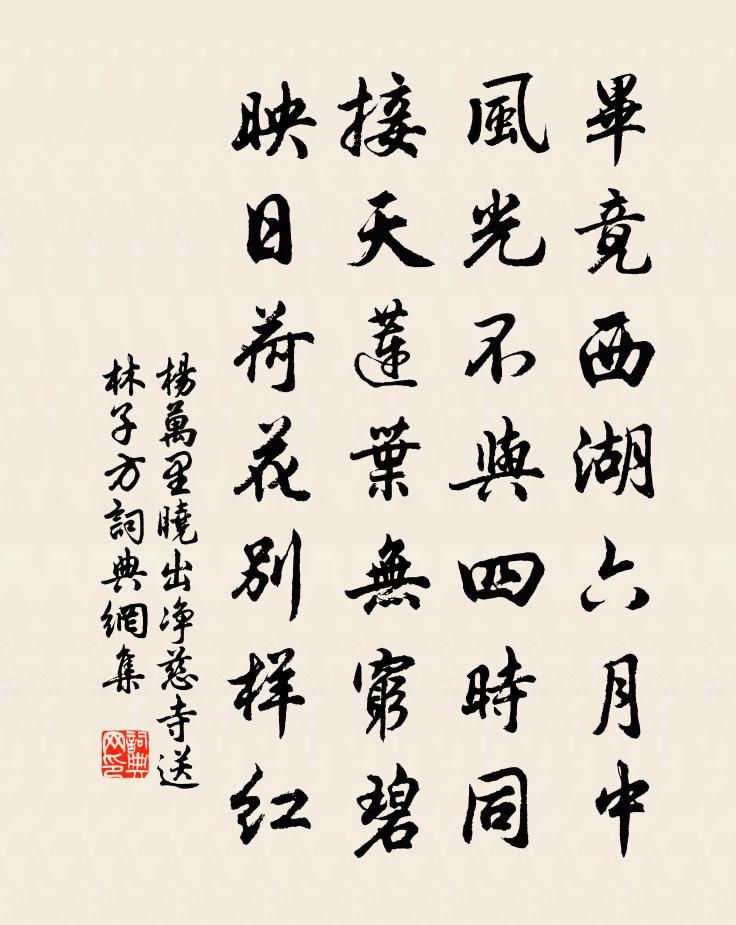 畢竟西湖六月中
風光不與四時同
接天蓮葉無窮碧
映日荷花别样红
楊萬里曉出净慈寺送
林子方詞典網集
詞典
网印